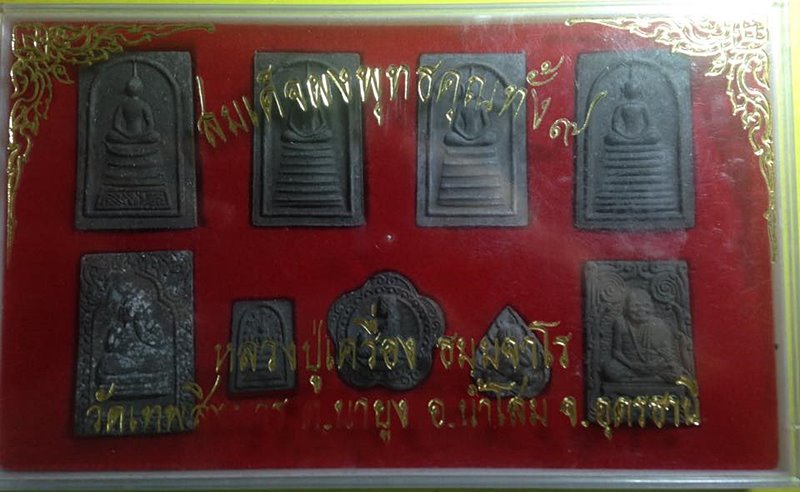 สมเด็จผงพุทธคุณทั้ง๙
หลวงปู่เครื่อง ธมฺมจาโร
ต.นายูง อ.น้ำโสม จ.อุดรธานี